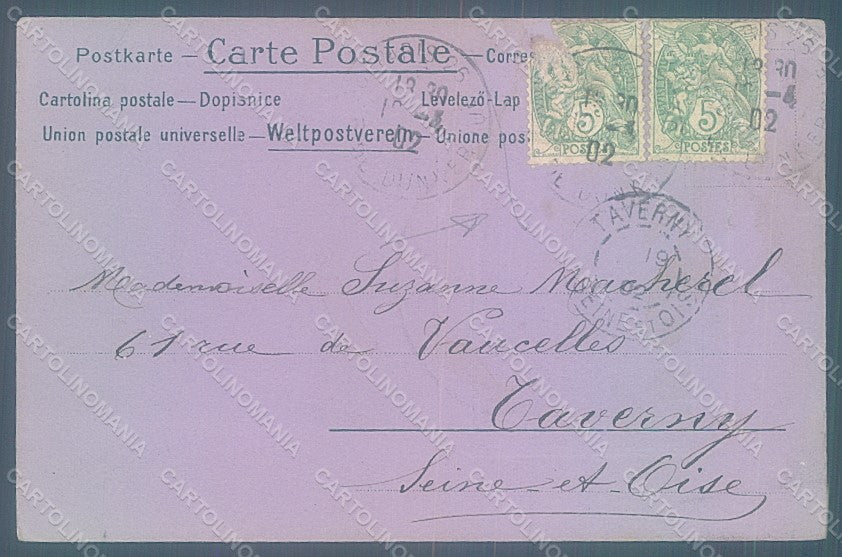 Postkarte — Carte Postale — Corres
Cartolina postale — Dopisnice Levelező-Lap
Union postale universelle — Weltpostverein — Unione pos
5 5
POSTES POSTES
12 30
-4
02
DUNKERQUE
TAVERNY
19
02
SEINE-ET-OISE
Mademoiselle Suzanne Macherel
61 rue de Vaucelles
Taverny
Seine-et-Oise
CARTOLINOMANIA